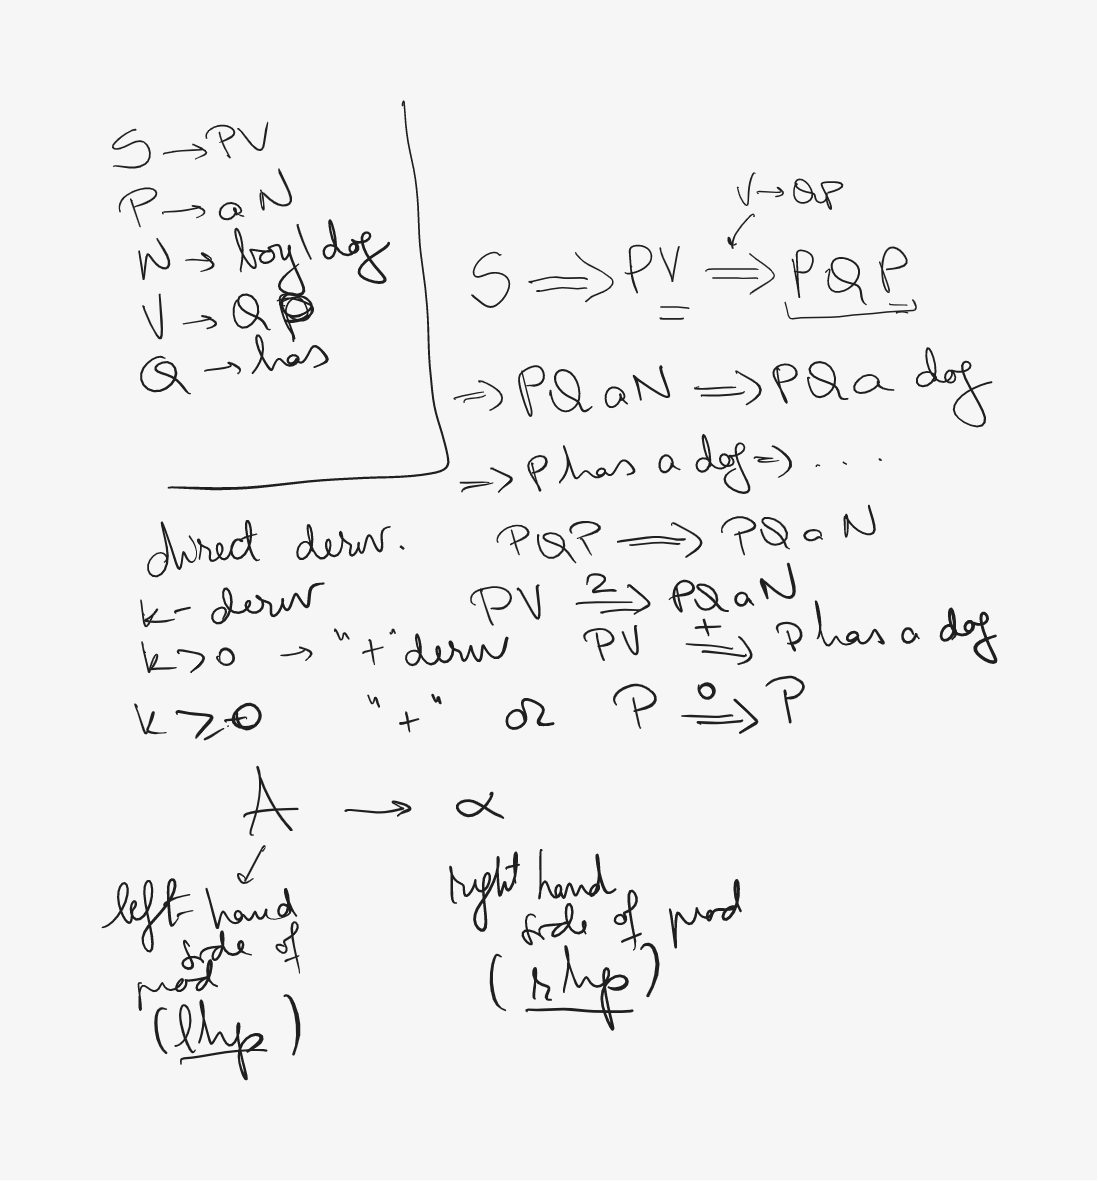 S → PV
P → a N
N → boy | dog
V → QP
Q → has
V → QP
S ⟹ PV ⟹ PQP
⟹ PQaN ⟹ PQa dog
⟹ P has a dog ⟹ ....
direct deriv. PQP ⟹ PQaN
k-deriv PV 2⟹ PQaN
k>0 → "+" deriv PV +⟹ P has a dog
k ≥ 0 "+" or P 0⟹ P
A → α
left hand
side of
prod
(lhp)
right hand
side of prod
(rhp)